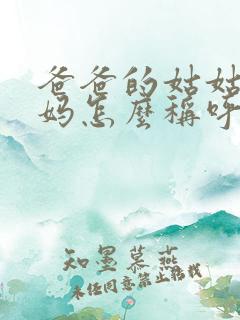 爸爸的姑姑
妈怎麼稱呼
知墨慕燕
未经同意禁止转载